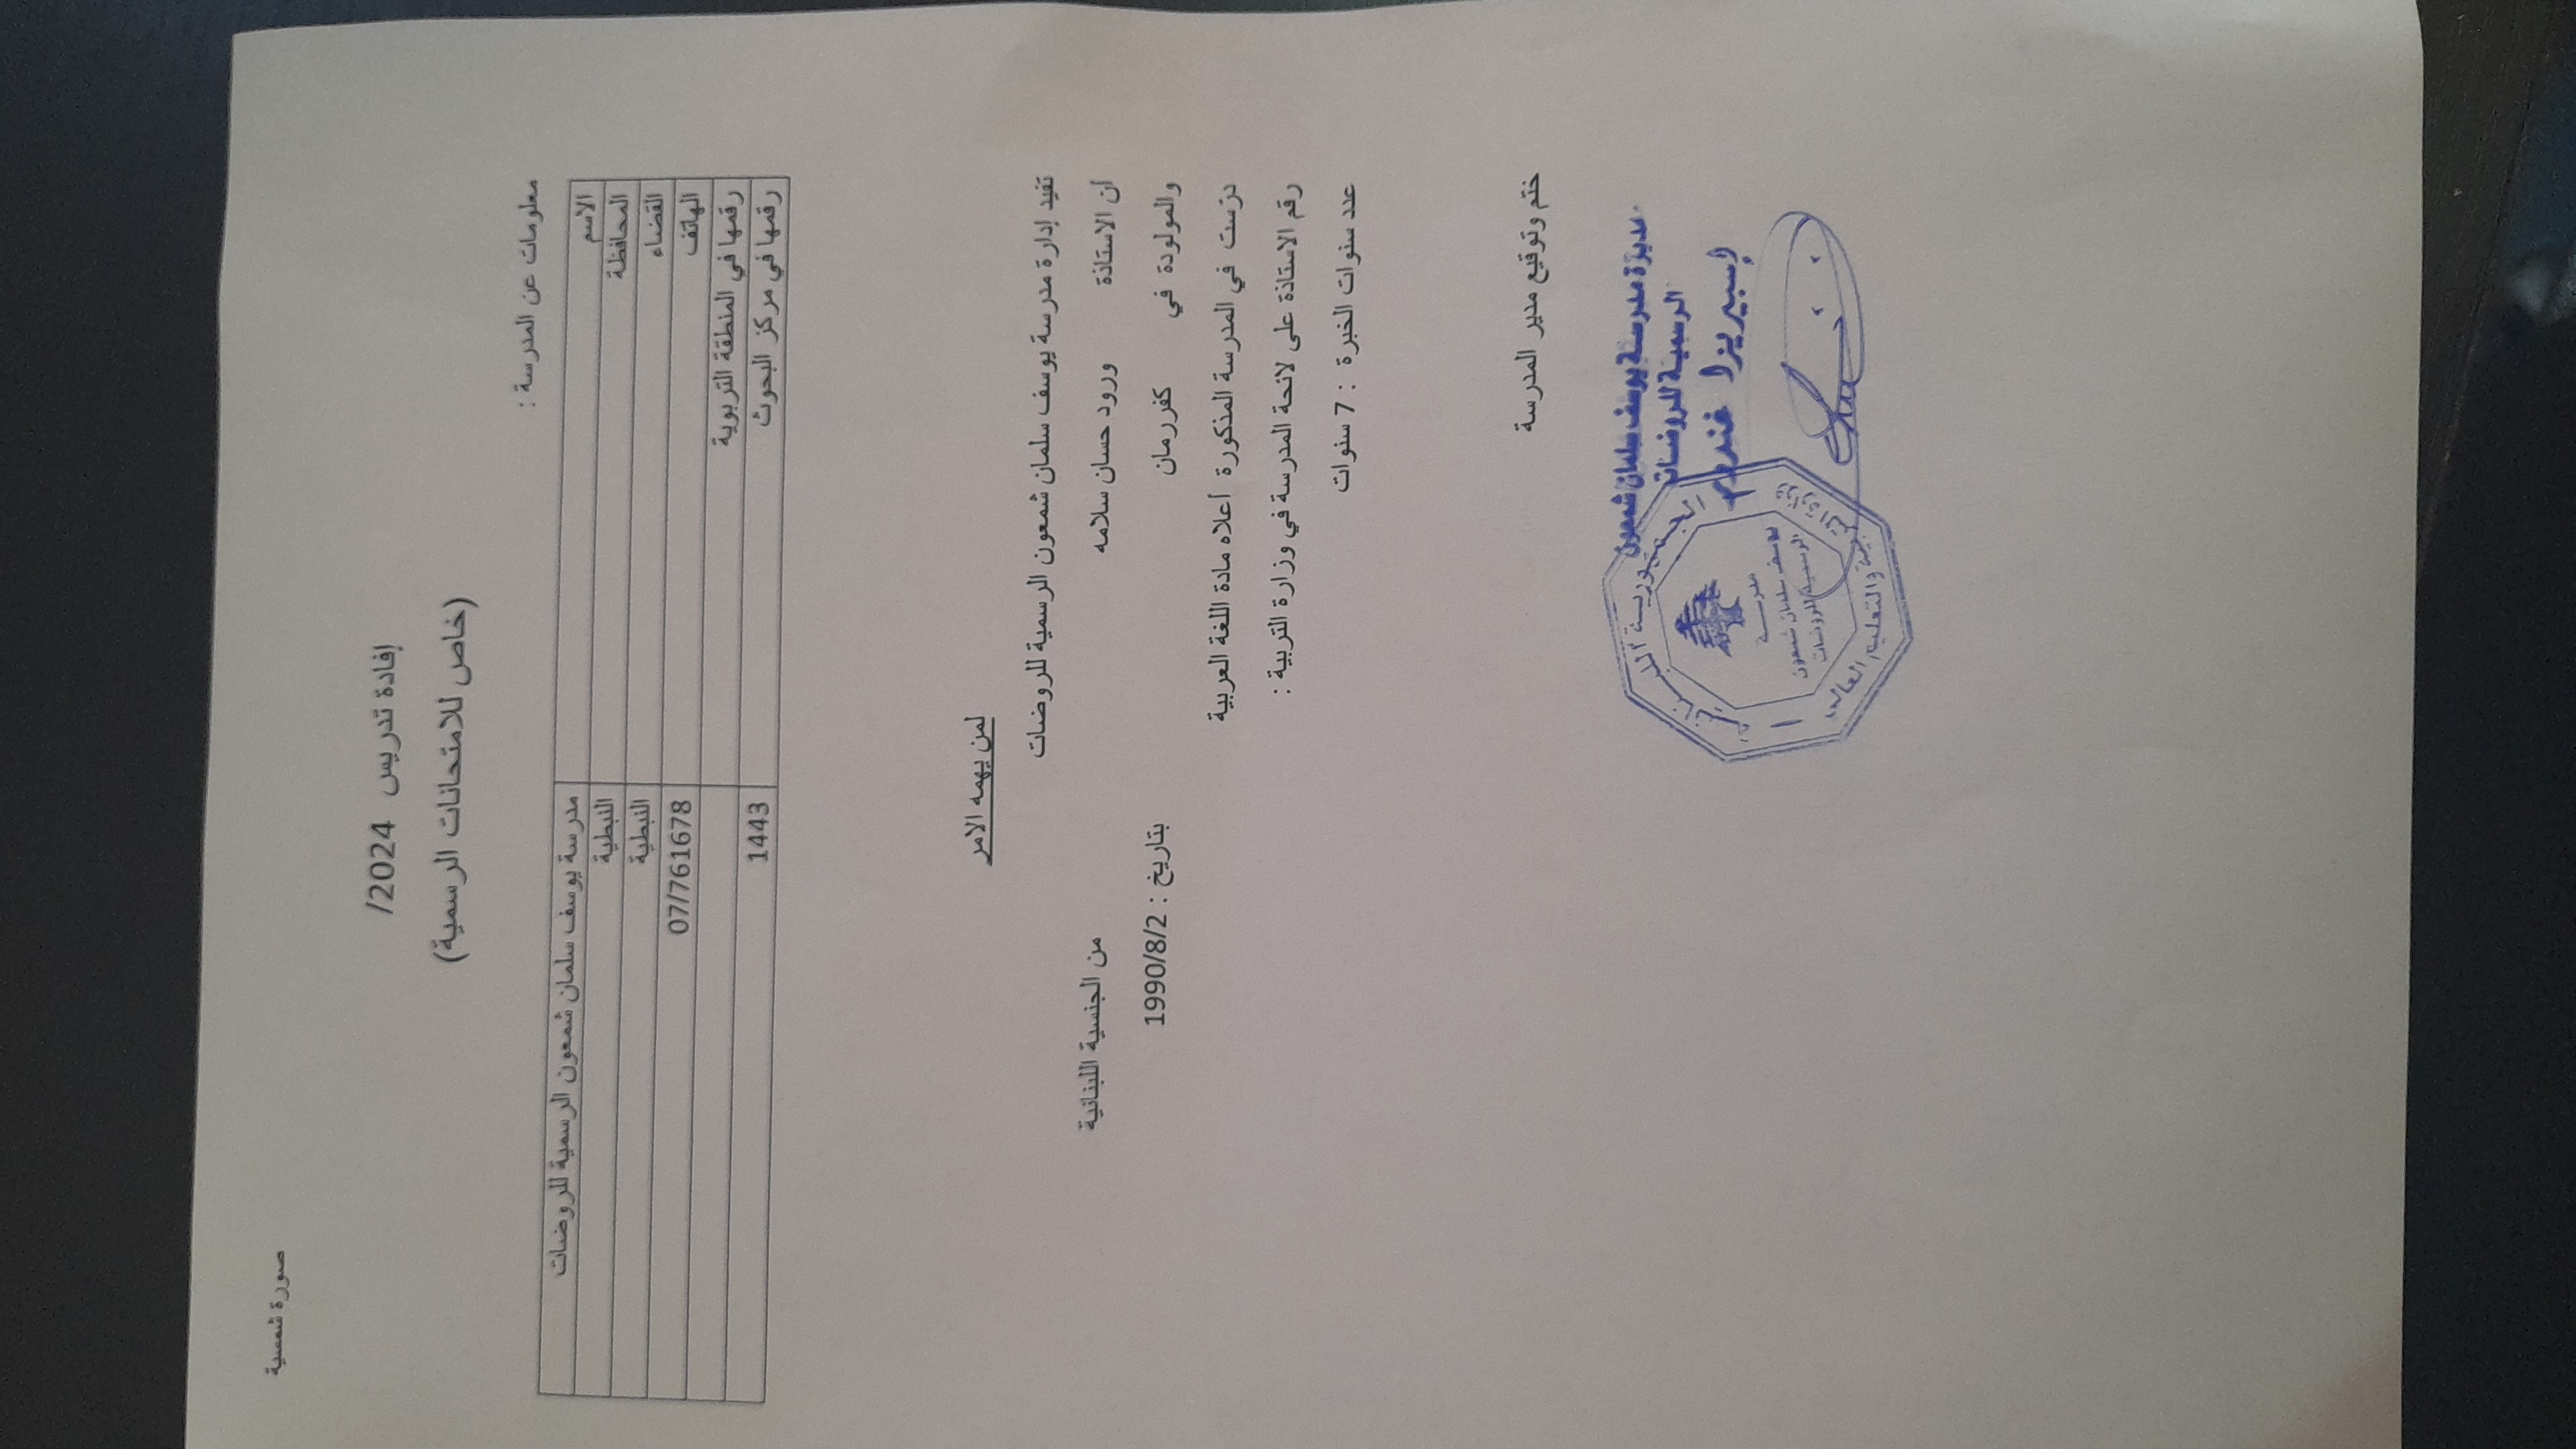 صورة شمسية
إفادة تدريس 2024/
(خاص للامتحانات الرسمية)
معلومات عن المدرسة :
الاسم مدرسة يوسف سلمان شمعون الرسمية للروضات
المحافظة النبطية
القضاء النبطية
الهاتف 07/761678
رقمها في المنطقة التربوية
رقمها في مركز البحوث 1443
لمن يهمه الامر
تفيد إدارة مدرسة يوسف سلمان شمعون الرسمية للروضات
أن الاستاذة ورود حسان سلامه من الجنسية اللبنانية
والمولودة في كفررمان بتاريخ : 1990/8/2
درست في المدرسة المذكورة أعلاه مادة اللغة العربية
رقم الاستاذة على لائحة المدرسة في وزارة التربية :
عدد سنوات الخبرة : 7 سنوات
ختم وتوقيع مدير المدرسة
مديرة مدرسة يوسف سلمان شمعون
الرسمية للروضات
الجمهورية اللبنانية
مدرسة
يوسف سلمان شمعون
الرسمية للروضات
والتعليم العالي